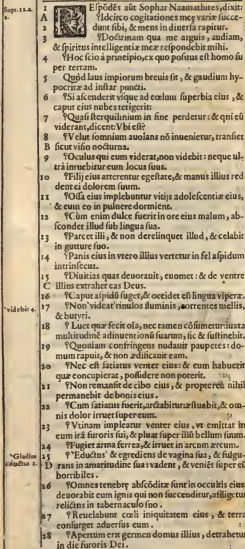 Respōdēs aūt Sophar Naamathites, dixit:
Idcirco cogitationes meę varię succe-
dunt sibi, & mens in diuersa rapitur.
3 Doctrinam qua me arguis, audiam,
& spiritus intelligentiæ meæ respondebit mihi.
4 Hoc scio à principio, ex quo positus est homo su
per terram.
5 Quòd laus impiorum breuis sit, & gaudium hy-
pocritæ ad instar puncti.
6 Si ascenderit vsque ad cœlum superbia eius, &
caput eius nubes tetigerit:
7 Quasi sterquilinium in fine perdetur: & qui eū
viderant, dicent: Vbi est?
8 Velut somnium auolans nō inuenietur, transiet
B sicut visio nocturna.
9 Oculus qui eum viderat, non videbit: neque ul-
trà intuebitur eum locus suus.
10 Filij eius atterentur egestate, & manus illius red
dent ei dolorem suum.
11 Ossa eius implebuntur vitijs adolescentiæ eius,
& cum eo in puluere dormient.
12 Cùm enim dulce fuerit in ore eius malum, ab-
scondet illud sub lingua sua.
13 Parcet illi, & non derelinquet illud, & celabit
in gutture suo.
14 Panis eius in vtero illius vertetur in fel aspidum
intrinsecus.
15 Diuitias quas deuorauit, euomet: & de ventre
C illius extrahet eas Deus.
16 Caput aspidū suget, & occidet eū lingua viperæ.
17 Non videat riuulos fluminis, torrentes mellis,
& butyri.
18 Luet quæ fecit oīa, nec tamen cōsumetur: iuxta
multitudinē adinuentionū suarum, sic & sustinebit.
19 Quoniam confringens nudauit pauperes: do-
mum rapuit, & non ædificauit eam.
20 Nec est satiatus venter eius: & cum habuerit
quæ concupierat, possidere non poterit.
21 Non remansit de cibo eius, & propterea nihil
permanebit de bonis eius.
22 Cum satiatus fuerit, arctabitur æstuabit, & om-
nis dolor irruet super eum.
23 Vtinam impleatur venter eius, vt emittat in
eum irā furoris sui, & pluat super illū bellum suum.
24 Fugiet arma ferrea, & irruet in arcum æreum.
25 Eductus & egrediens de vagina sua, & fulgu-
D rans in amaritudine sua: vadent, & veniēt super eū
horribiles.
26 Omnes tenebrę abscōditæ sunt in occultis eius
deuorabit eum ignis qui non succenditur, affligetur
relictus in tabernaculo suo.
27 Reuelabunt cœli iniquitatem eius, & terra
consurget aduersus eum.
28 Apertum erit germen domus illius, detrahetur
in die furoris Dei.
videbit
Gladius
eductus